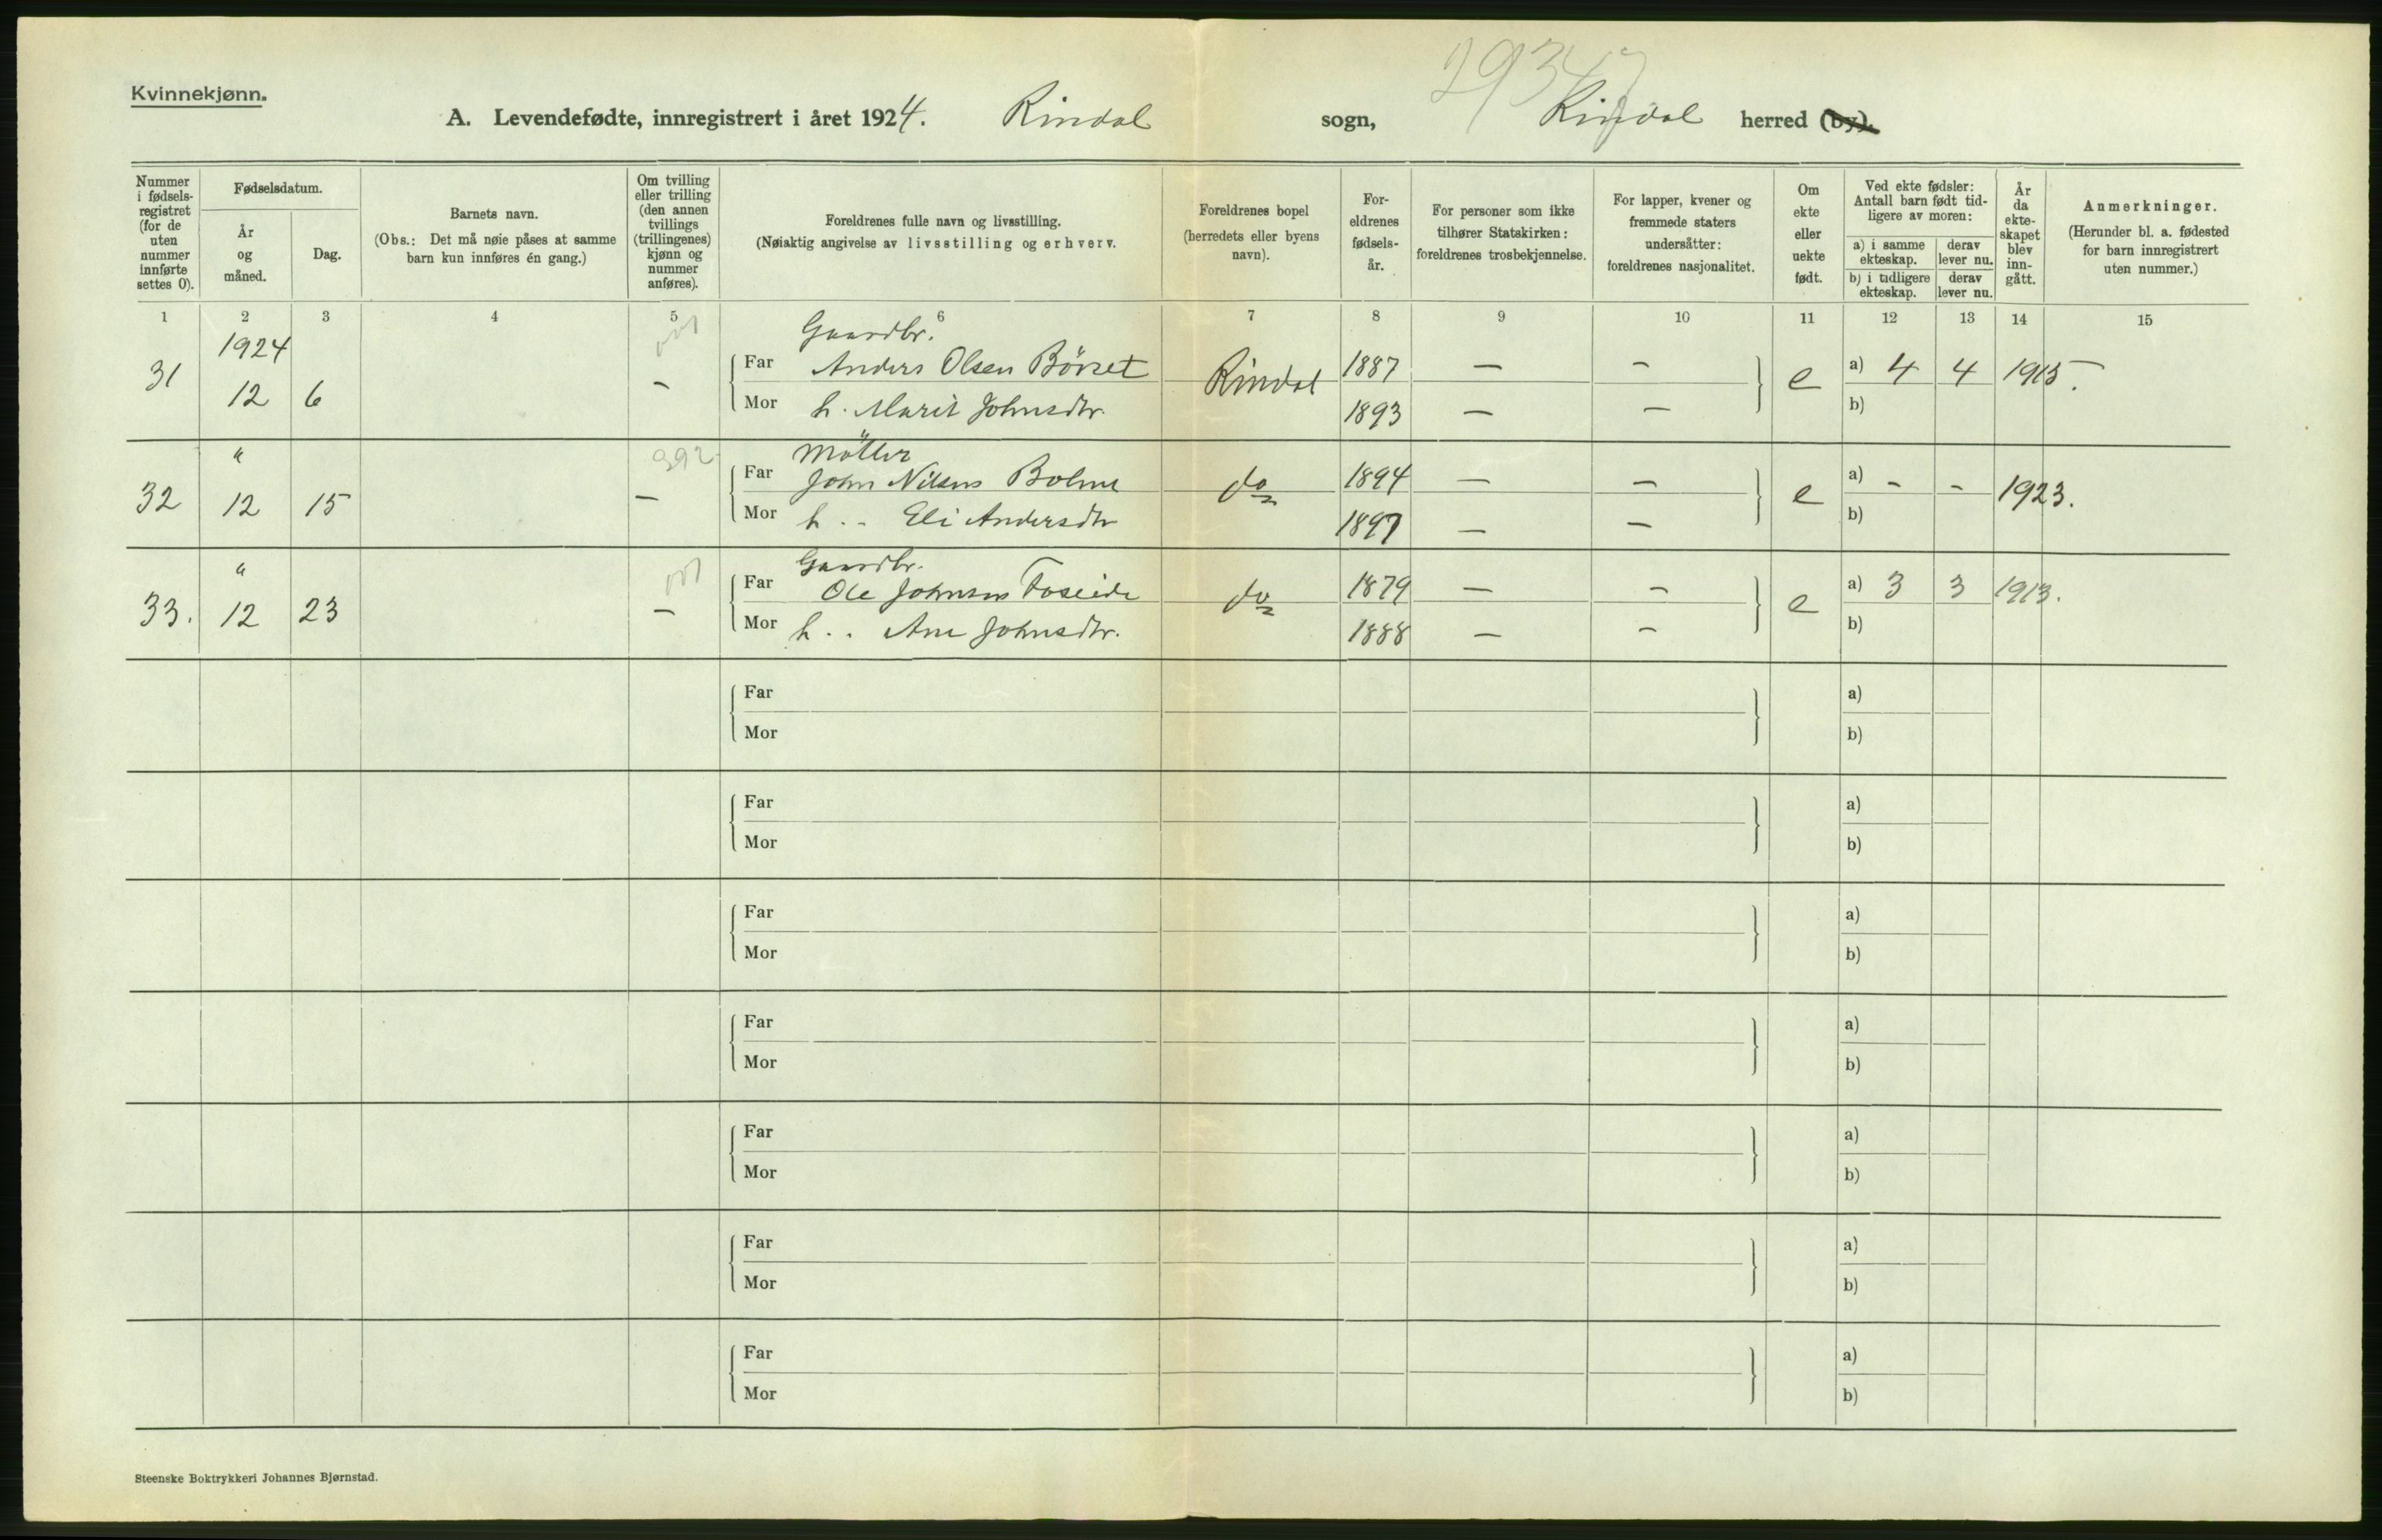 Kvinnekjønn.
29347
A. Levendefødte, innregistrert i året 1924. Rindal sogn, Rindal herred (by).
Nummer i fødsels-registret (for de uten nummer innførte settes 0).
Fødselsdatum.
År og måned.
Dag.
Barnets navn.
(Obs.: Det må nøie påses at samme barn kun innføres én gang.)
Om tvilling eller trilling (den annen tvillings (trillingenes) kjønn og nummer anføres).
Foreldrenes fulle navn og livsstilling.
(Nøiaktig angivelse av livsstilling og erhverv.
Foreldrenes bopel (herredets eller byens navn).
For-eldrenes fødsels-år.
For personer som ikke tilhører Statskirken: foreldrenes trosbekjennelse.
For lapper, kvener og fremmede staters undersåtter: foreldrenes nasjonalitet.
Om ekte eller uekte født.
Ved ekte fødsler: Antall barn født tid-ligere av moren:
a) i samme ekteskap.
derav lever nu.
b) i tidligere ekteskap.
derav lever nu.
År da ekte-skapet blev inn-gått.
Anmerkninger.
(Herunder bl. a. fødested for barn innregistrert uten nummer.)
1 2 3 4 5 6 7 8 9 10 11 12 13 14 15
1924 Gaardbr.
31 12 6 — Far Anders Olsen Börset Rindal 1887 — — e a) 4 4 1915.
Mor h. Marit Johnsdtr. 1893 — — b)
" 392 Möller
32 12 15 — Far John Nilsen Bolme do 1894 — — e a) - - 1923.
Mor h. .. Eli Andersdtr 1897 — — b)
" Gaardbr.
33. 12 23 — Far Ole Johnsen Foseide do 1879 — — e a) 3 3 1913.
Mor h. .. Ane Johnsdtr. 1888 — — b)
Far a)
Mor b)
Far a)
Mor b)
Far a)
Mor b)
Far a)
Mor b)
Far a)
Mor b)
Far a)
Mor b)
Far a)
Mor b)
Steenske Boktrykkeri Johannes Bjørnstad.